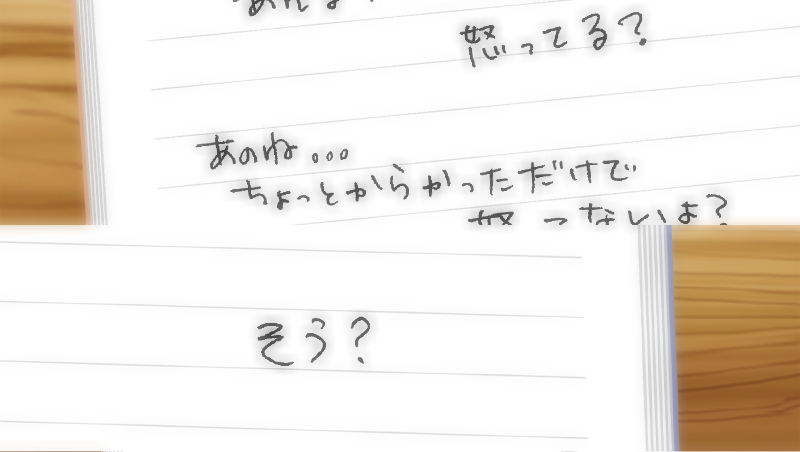 怒ってる?
あのね...
ちょっとからかっただけで
怒ってないよ?
そう?